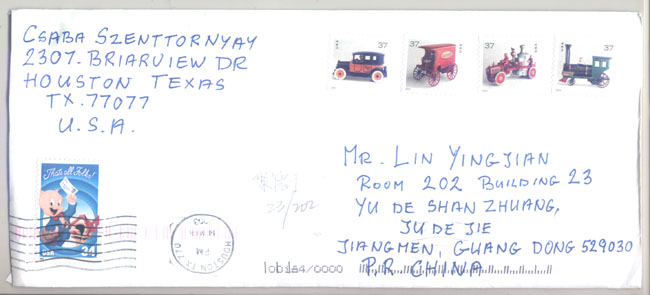 CSABA SZENTTORNYAY
2307. BRIARVIEW DR
HOUSTON TEXAS
TX. 77077
U.S.A.
37
37
37
37
That's all Folks!
34
USA
HOUSTON TX 770
PM
23/202
MR. LIN YINGJIAN
ROOM 202 BUILDING 23
YU DE SHAN ZHUANG,
JU DE JIE
JIANGMEN, GUANG DONG 529030
P.R. CHINA